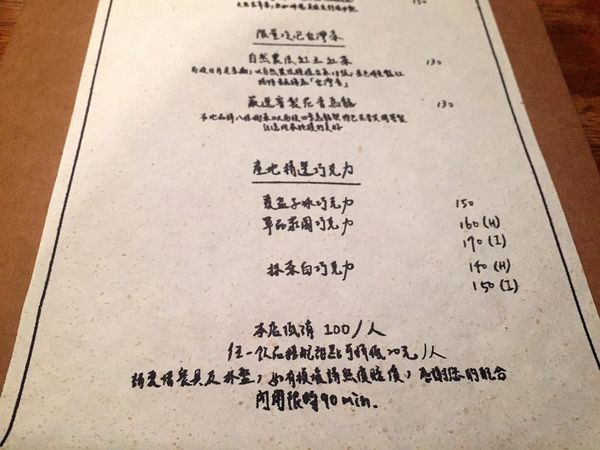 150
限量吃他台灣茶
自然農法紅玉紅茶 130
嚴選窨製花香烏龍 130
產地精選巧克力
覆盆子冰巧克力 150
單品莊園巧克力 160(H)
170(I)
抹茶白巧克力 140(H)
150(I)
本店低消 100/人
任一飲品搭配甜點可折低20元/人
請愛惜餐具及杯盤,如有損壞請照價賠償,感謝您的配合
內用限時90min.